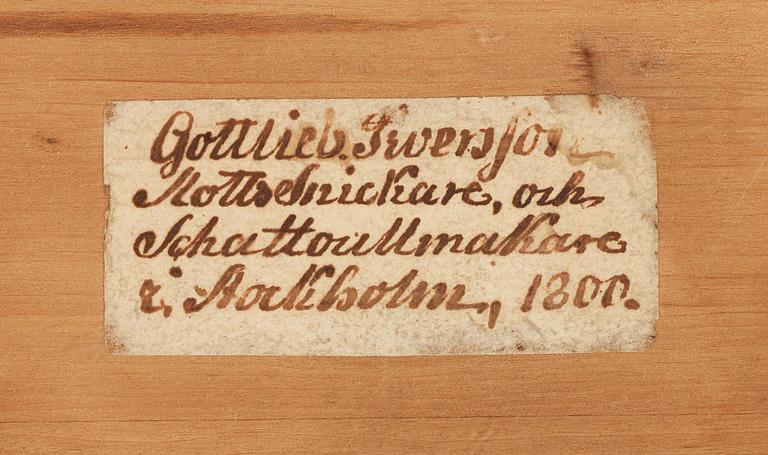 Gottlieb. Iwersson
Slotts Snickare, och
Schattoullmakare
i, Stockholm., 1800.